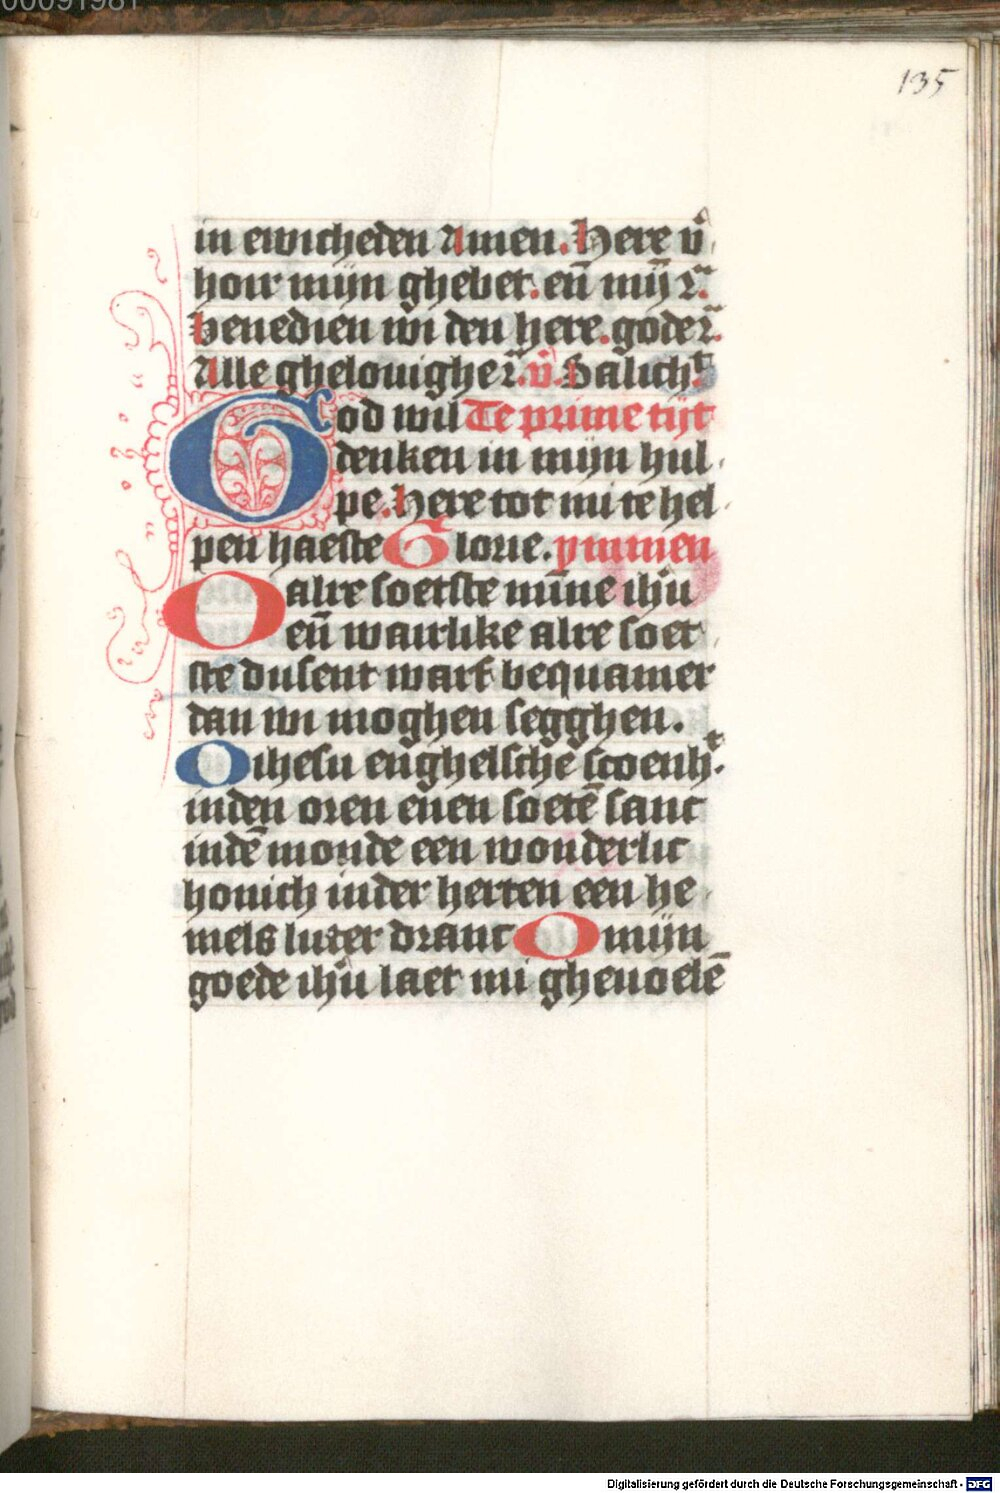 00091981
135
in ewicheden Amen. Here v̄
hoir mijn ghebet. eñ mij r̄.
benedien wi den here. gode r̄.
Alle ghelouigher̄. v̄. Salicht
God wil Te prime tijt
denken in mijn hul
pe. Here tot mi te hel
pen haeste Glorie. ymmen
O alre soetste mīne ihu̅
eñ wairlike alre soet
ste dusent warf bequamer
dan wi moghen segghen.
O ihesu enghelsche scoenht.
inden oren enen soetē sanc
indē monde een wonderlic
honich inder herten een he
mels luter dranc O mijn
goede ihu̅ laet mi gheuoelē
Digitalisierung gefördert durch die Deutsche Forschungsgemeinschaft - DFG